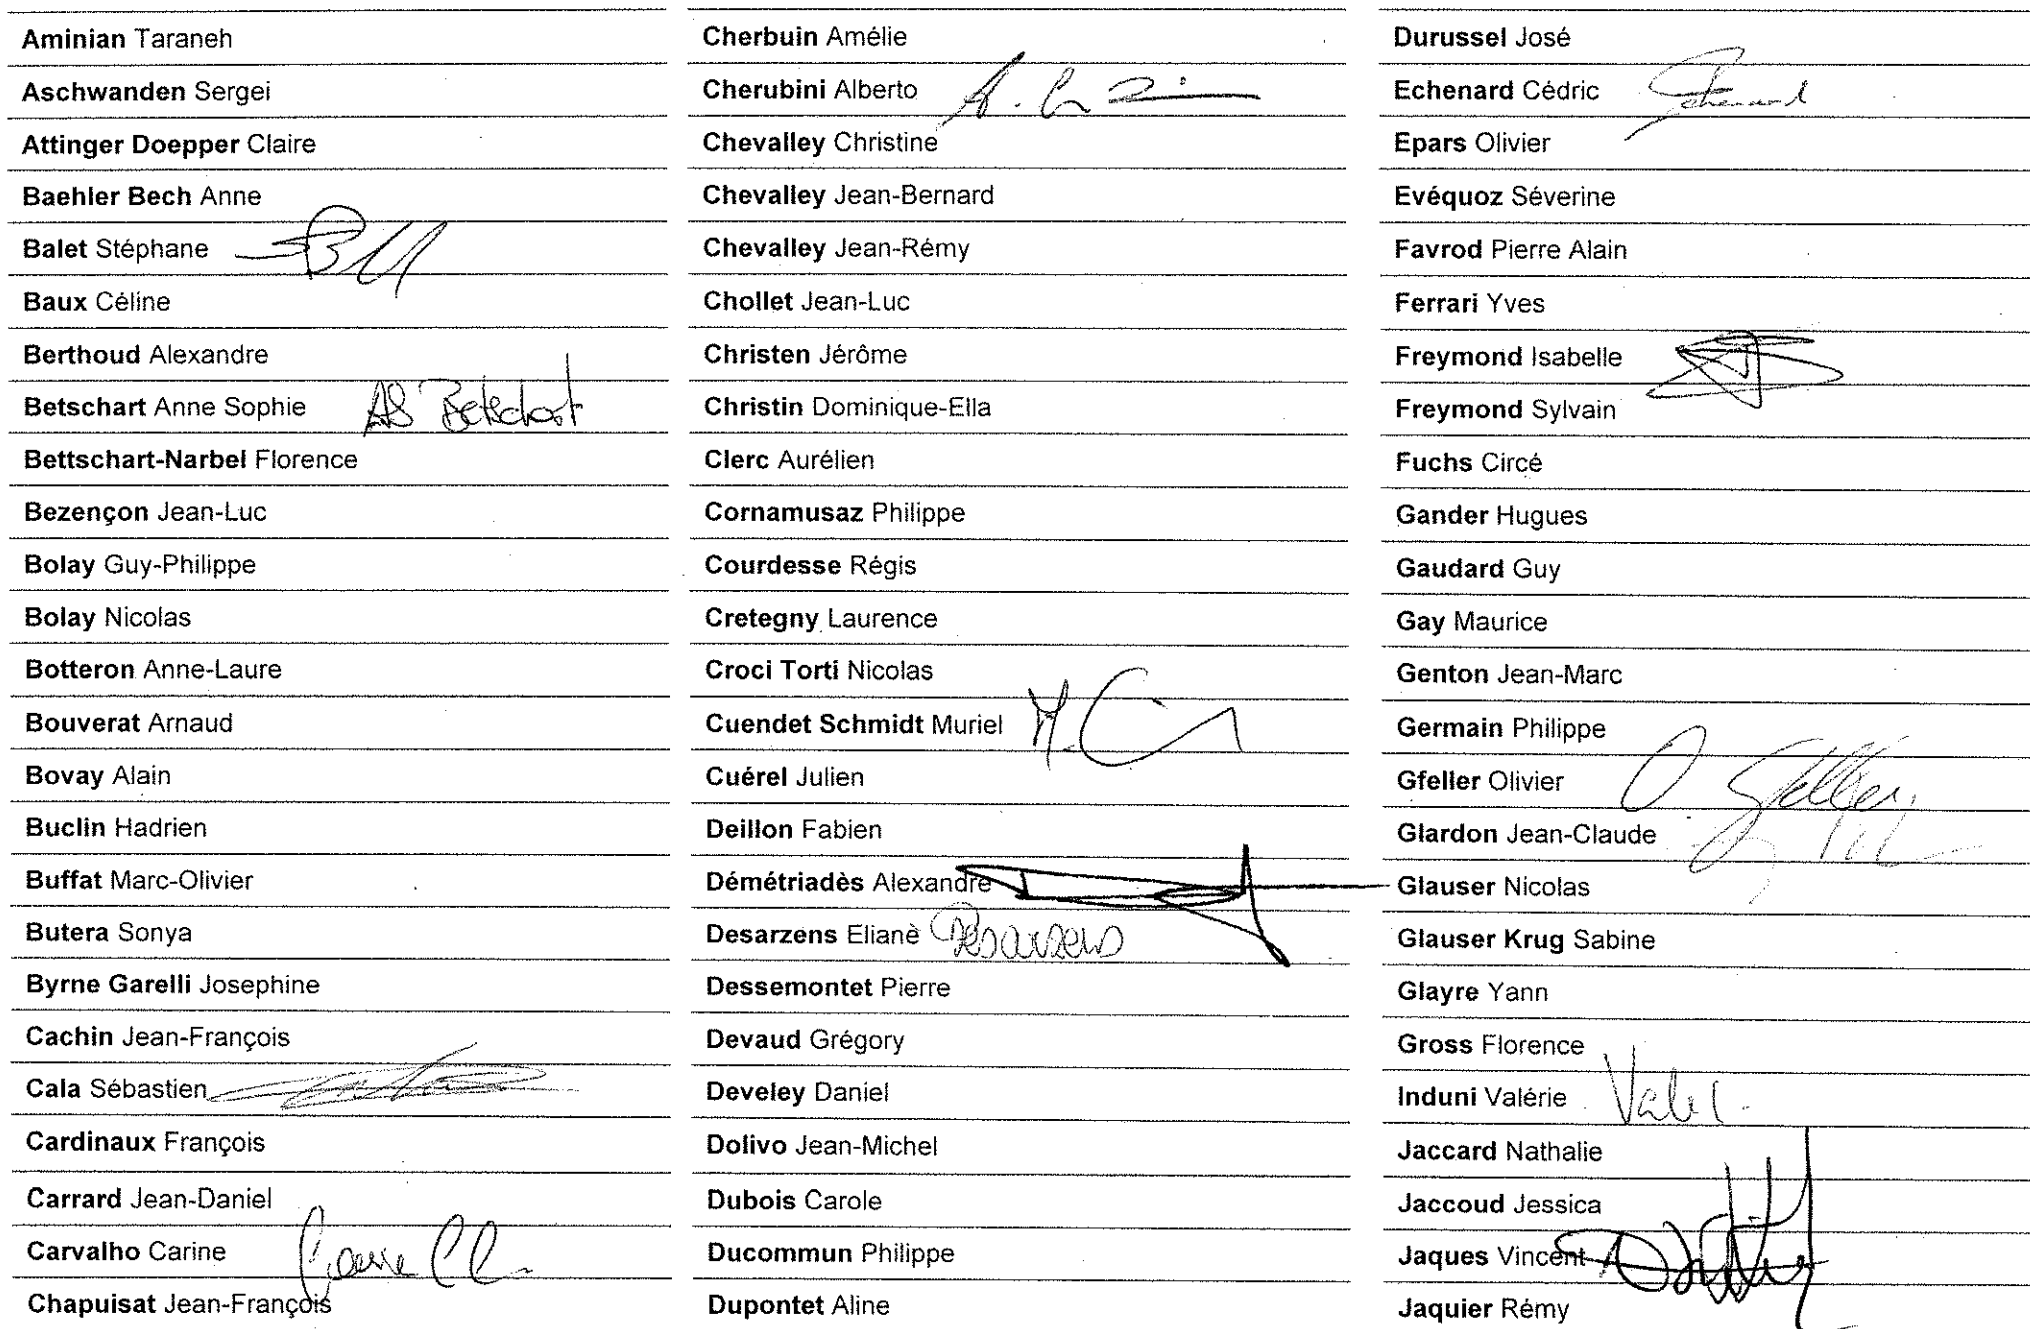 Aminian Taraneh
Aschwanden Sergei
Attinger Doepper Claire
Baehler Bech Anne
Balet Stéphane
Baux Céline
Berthoud Alexandre
Betschart Anne Sophie AS Betschart
Bettschart-Narbel Florence
Bezençon Jean-Luc
Bolay Guy-Philippe
Bolay Nicolas
Botteron Anne-Laure
Bouverat Arnaud
Bovay Alain
Buclin Hadrien
Buffat Marc-Olivier
Butera Sonya
Byrne Garelli Josephine
Cachin Jean-François
Cala Sébastien
Cardinaux François
Carrard Jean-Daniel
Carvalho Carine
Chapuisat Jean-François
Cherbuin Amélie
Cherubini Alberto
Chevalley Christine
Chevalley Jean-Bernard
Chevalley Jean-Rémy
Chollet Jean-Luc
Christen Jérôme
Christin Dominique-Ella
Clerc Aurélien
Cornamusaz Philippe
Courdesse Régis
Cretegny Laurence
Croci Torti Nicolas
Cuendet Schmidt Muriel
Cuérel Julien
Deillon Fabien
Démétriadès Alexandre
Desarzens Eliane Desarzens
Dessemontet Pierre
Devaud Grégory
Develey Daniel
Dolivo Jean-Michel
Dubois Carole
Ducommun Philippe
Dupontet Aline
Durussel José
Echenard Cédric Echenard
Epars Olivier
Evéquoz Séverine
Favrod Pierre Alain
Ferrari Yves
Freymond Isabelle
Freymond Sylvain
Fuchs Circé
Gander Hugues
Gaudard Guy
Gay Maurice
Genton Jean-Marc
Germain Philippe
Gfeller Olivier O Gfeller
Glardon Jean-Claude
Glauser Nicolas
Glauser Krug Sabine
Glayre Yann
Gross Florence
Induni Valérie
Jaccard Nathalie
Jaccoud Jessica
Jaques Vincent
Jaquier Rémy